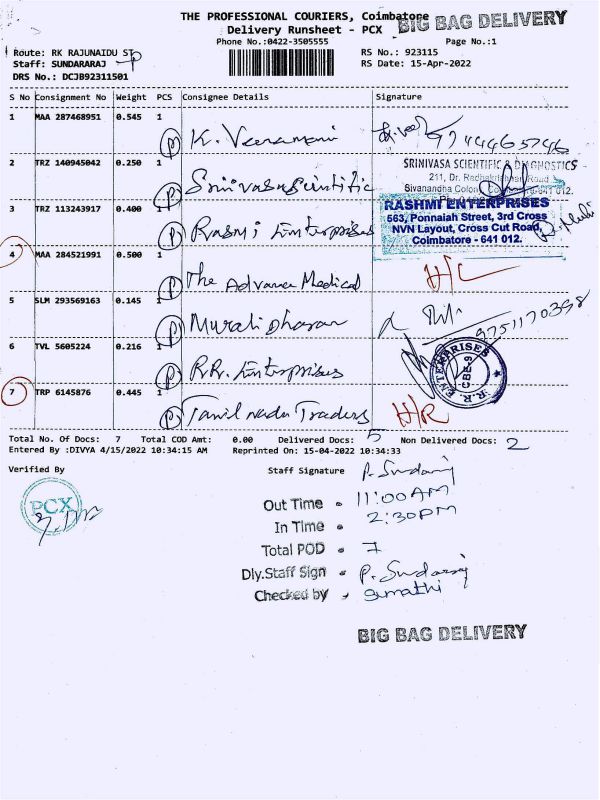 THE PROFESSIONAL COURIERS, Coimbatore
BIG BAG DELIVERY
Delivery Runsheet - PCX
Phone No.:0422-3505555
Page No.:1
Route: RK RAJUNAIDU ST
Staff: SUNDARARAJ
DRS No.: DCJB92311501
RS No.: 923115
RS Date: 15-Apr-2022
S No Consignment No Weight PCS Consignee Details Signature
1 MAA 287468951 0.545 1 K. Veeramani
2 TRZ 140945042 0.250 1 Srinivasa Scientific
SRINIVASA SCIENTIFIC & DIAGNOSTICS
211, Dr. Radhakrishnan Road
3 TRZ 113243917 0.400 1 Rasmi Enterprises
RASHMI ENTERPRISES
563, Ponnaiah Street, 3rd Cross
NVN Layout, Cross Cut Road,
Coimbatore - 641 012.
4 MAA 284521991 0.500 1 The Advance Medical
5 SLM 293569163 0.145 1 Muralidharan
9751170398
6 TVL 5605224 0.216 1 R.R. Enterprises
R.R. ENTERPRISES
CBE-9
7 TRP 6145876 0.445 1 Tamil nadu Traders H/R
Total No. Of Docs: 7 Total COD Amt: 0.00 Delivered Docs: 5 Non Delivered Docs: 2
Entered By :DIVYA 4/15/2022 10:34:15 AM Reprinted On: 15-04-2022 10:34:33
Verified By
Staff Signature P. Sundaraj
PCX
Out Time - 11:00AM
In Time - 2:30PM
Total POD - 7
Dly.Staff Sign - P. Sundaraj
Checked by - Sumathi
BIG BAG DELIVERY